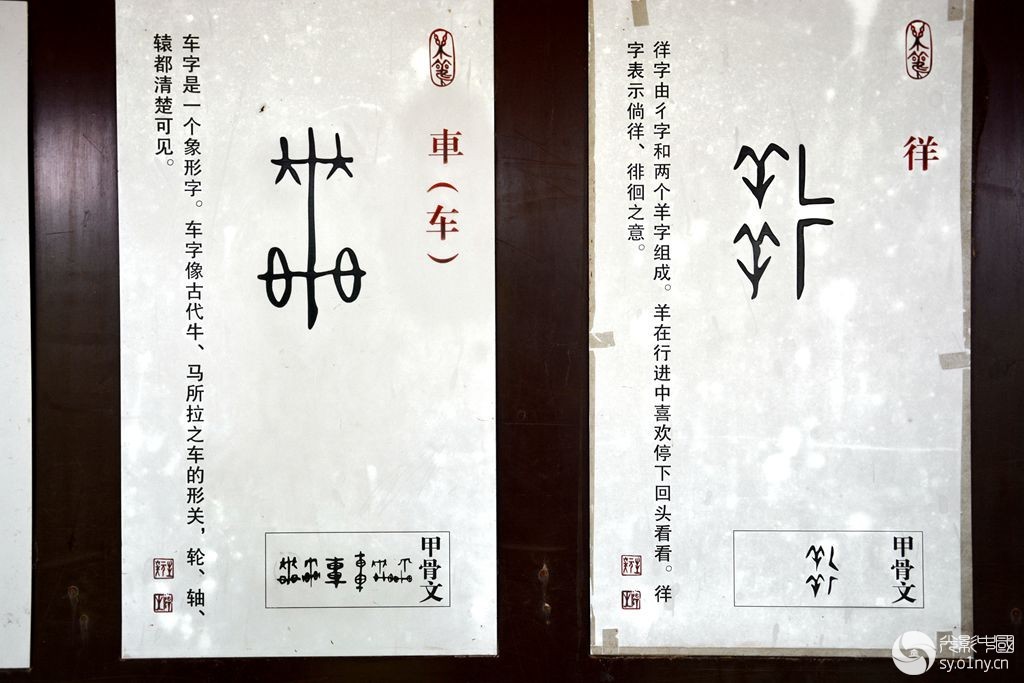 車（车）
车字是一个象形字。车字像古代牛、马所拉之车的形关，轮、轴、
辕都清楚可见。
甲骨文
徉
徉字由彳字和两个羊字组成。羊在行进中喜欢停下回头看看。徉
字表示倘徉、徘徊之意。
甲骨文
光影中國
sy.o1ny.cn